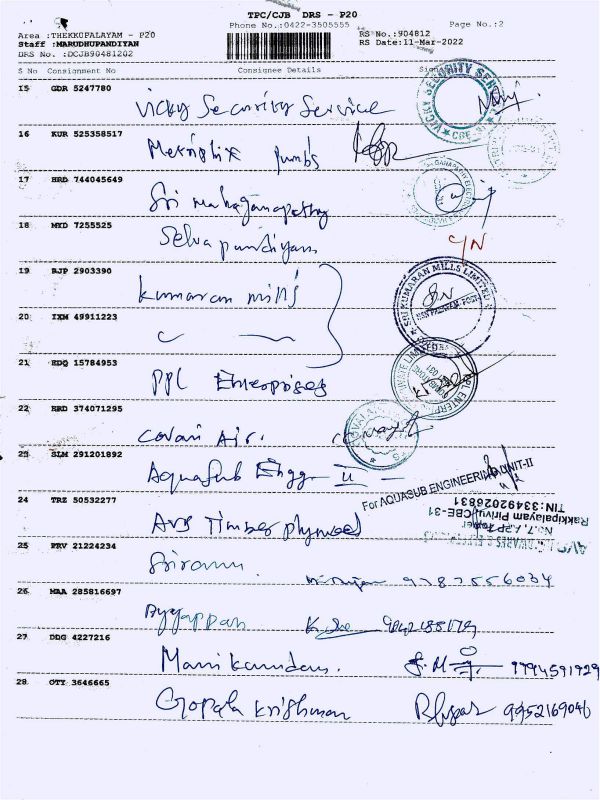 TPC/CJB DRS - P20
Phone No.:0422-3505555 Page No.:2
Area :THEKKUPALAYAM - P20 RS No.:904812
Staff :MARUDHUPANDIYAN RS Date:11-Mar-2022
DRS No. :DCJB90481202
S No Consignment No Consignee Details
15 GDR 5247780
Vicky Security Service
VICKY SECURITY SERV
CBE-31
16 KUR 525358517
17 HRD 744045649
Sri mahaganapathy
18 MYD 7255525
Selvapandiyan
19 RJP 2903390
Kumaran mills
SRI KUMARAN MILLS LIMITED
20 IXM 49911223
21 EDQ 15784953
PPL Enterprises
22 RRD 374071295
Covai Air.
23 SLM 291201892
Aquasub Engg II
For AQUASUB ENGINEERING UNIT-II
24 TRZ 50532277
AVS Timber plywood
Rakkipalayam Pirivu, CBE-31
TIN:33492026831
25 PRV 21224234
26 MAA 285816697
Ayyappan
27 DDG 4227216
Manikandan. 9994591929
28 OTY 3646665
Gopala Krishnan 9952169046